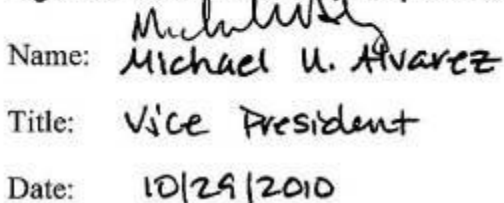 Name: Michael U. Alvarez
Title: Vice President
Date: 10/29/2010